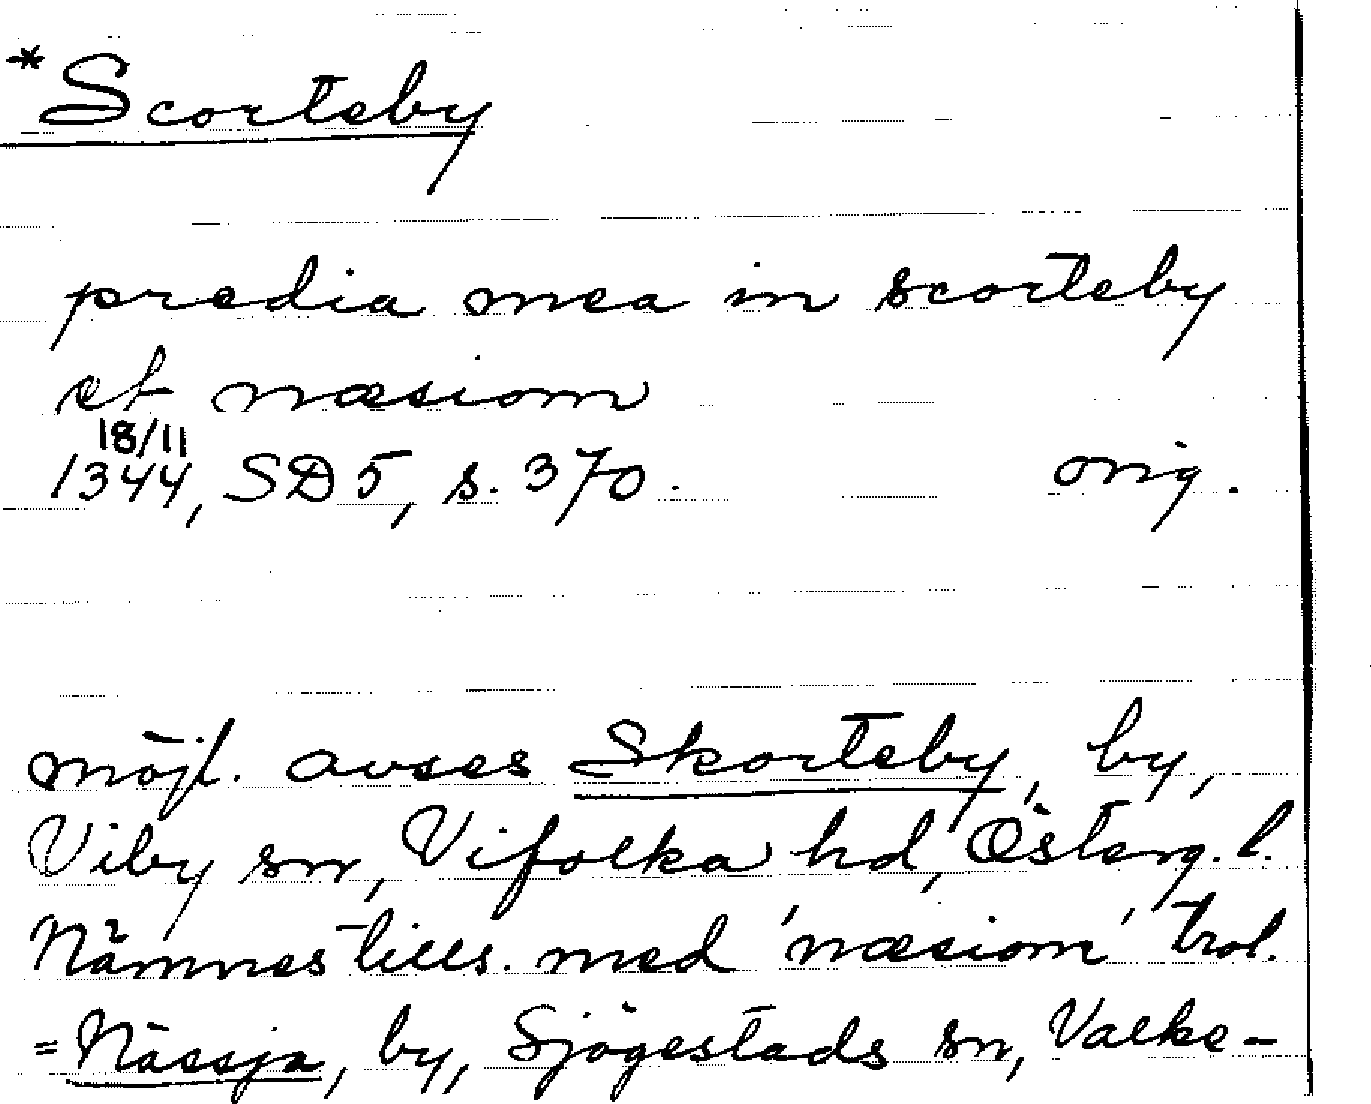 *Scorteby
predia mea in scorteby
et næsiom
18/11
1344, SD5, s. 370. orig.
möjl. avses Skorteby, by,
Viby sn, Vifolka hd, Österg. l.
Nämnes tills. med 'næsiom' trol.
= Nässja, by, Sjögestads sn, Valke-